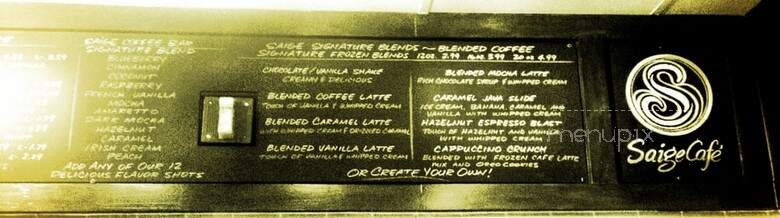 SAIGE COFFEE BAR
SIGNATURE BLEND
BLUEBERRY
CINNAMON
COCONUT
RASPBERRY
FRENCH VANILLA
MOCHA
AMARETTO
DARK MOCHA
HAZELNUT
CARAMEL
IRISH CREAM
PEACH
ADD ANY OF OUR 12
DELICIOUS FLAVOR SHOTS
SAIGE SIGNATURE BLENDS ~ BLENDED COFFEE
SIGNATURE FROZEN BLENDS 12oz 2.99 16oz 3.99 20oz 4.99
CHOCOLATE/VANILLA SHAKE
CREAMY & DELICIOUS
BLENDED COFFEE LATTE
TOUCH OF VANILLA & WHIPPED CREAM
BLENDED CARAMEL LATTE
WITH WHIPPED CREAM & DRIZZLED CARAMEL
BLENDED VANILLA LATTE
TOUCH OF VANILLA & WHIPPED CREAM
BLENDED MOCHA LATTE
RICH CHOCOLATE SYRUP & WHIPPED CREAM
CARAMEL JAVA SLIDE
ICE CREAM, BANANA, CARAMEL AND
VANILLA WITH WHIPPED CREAM
HAZELNUT ESPRESSO BLAST
TOUCH OF HAZELNUT AND VANILLA
WITH WHIPPED CREAM
CAPPUCCINO CRUNCH
BLENDED WITH FROZEN CAFE LATTE
MIX AND OREO COOKIES
OR CREATE YOUR OWN!
Saige Café
menupix